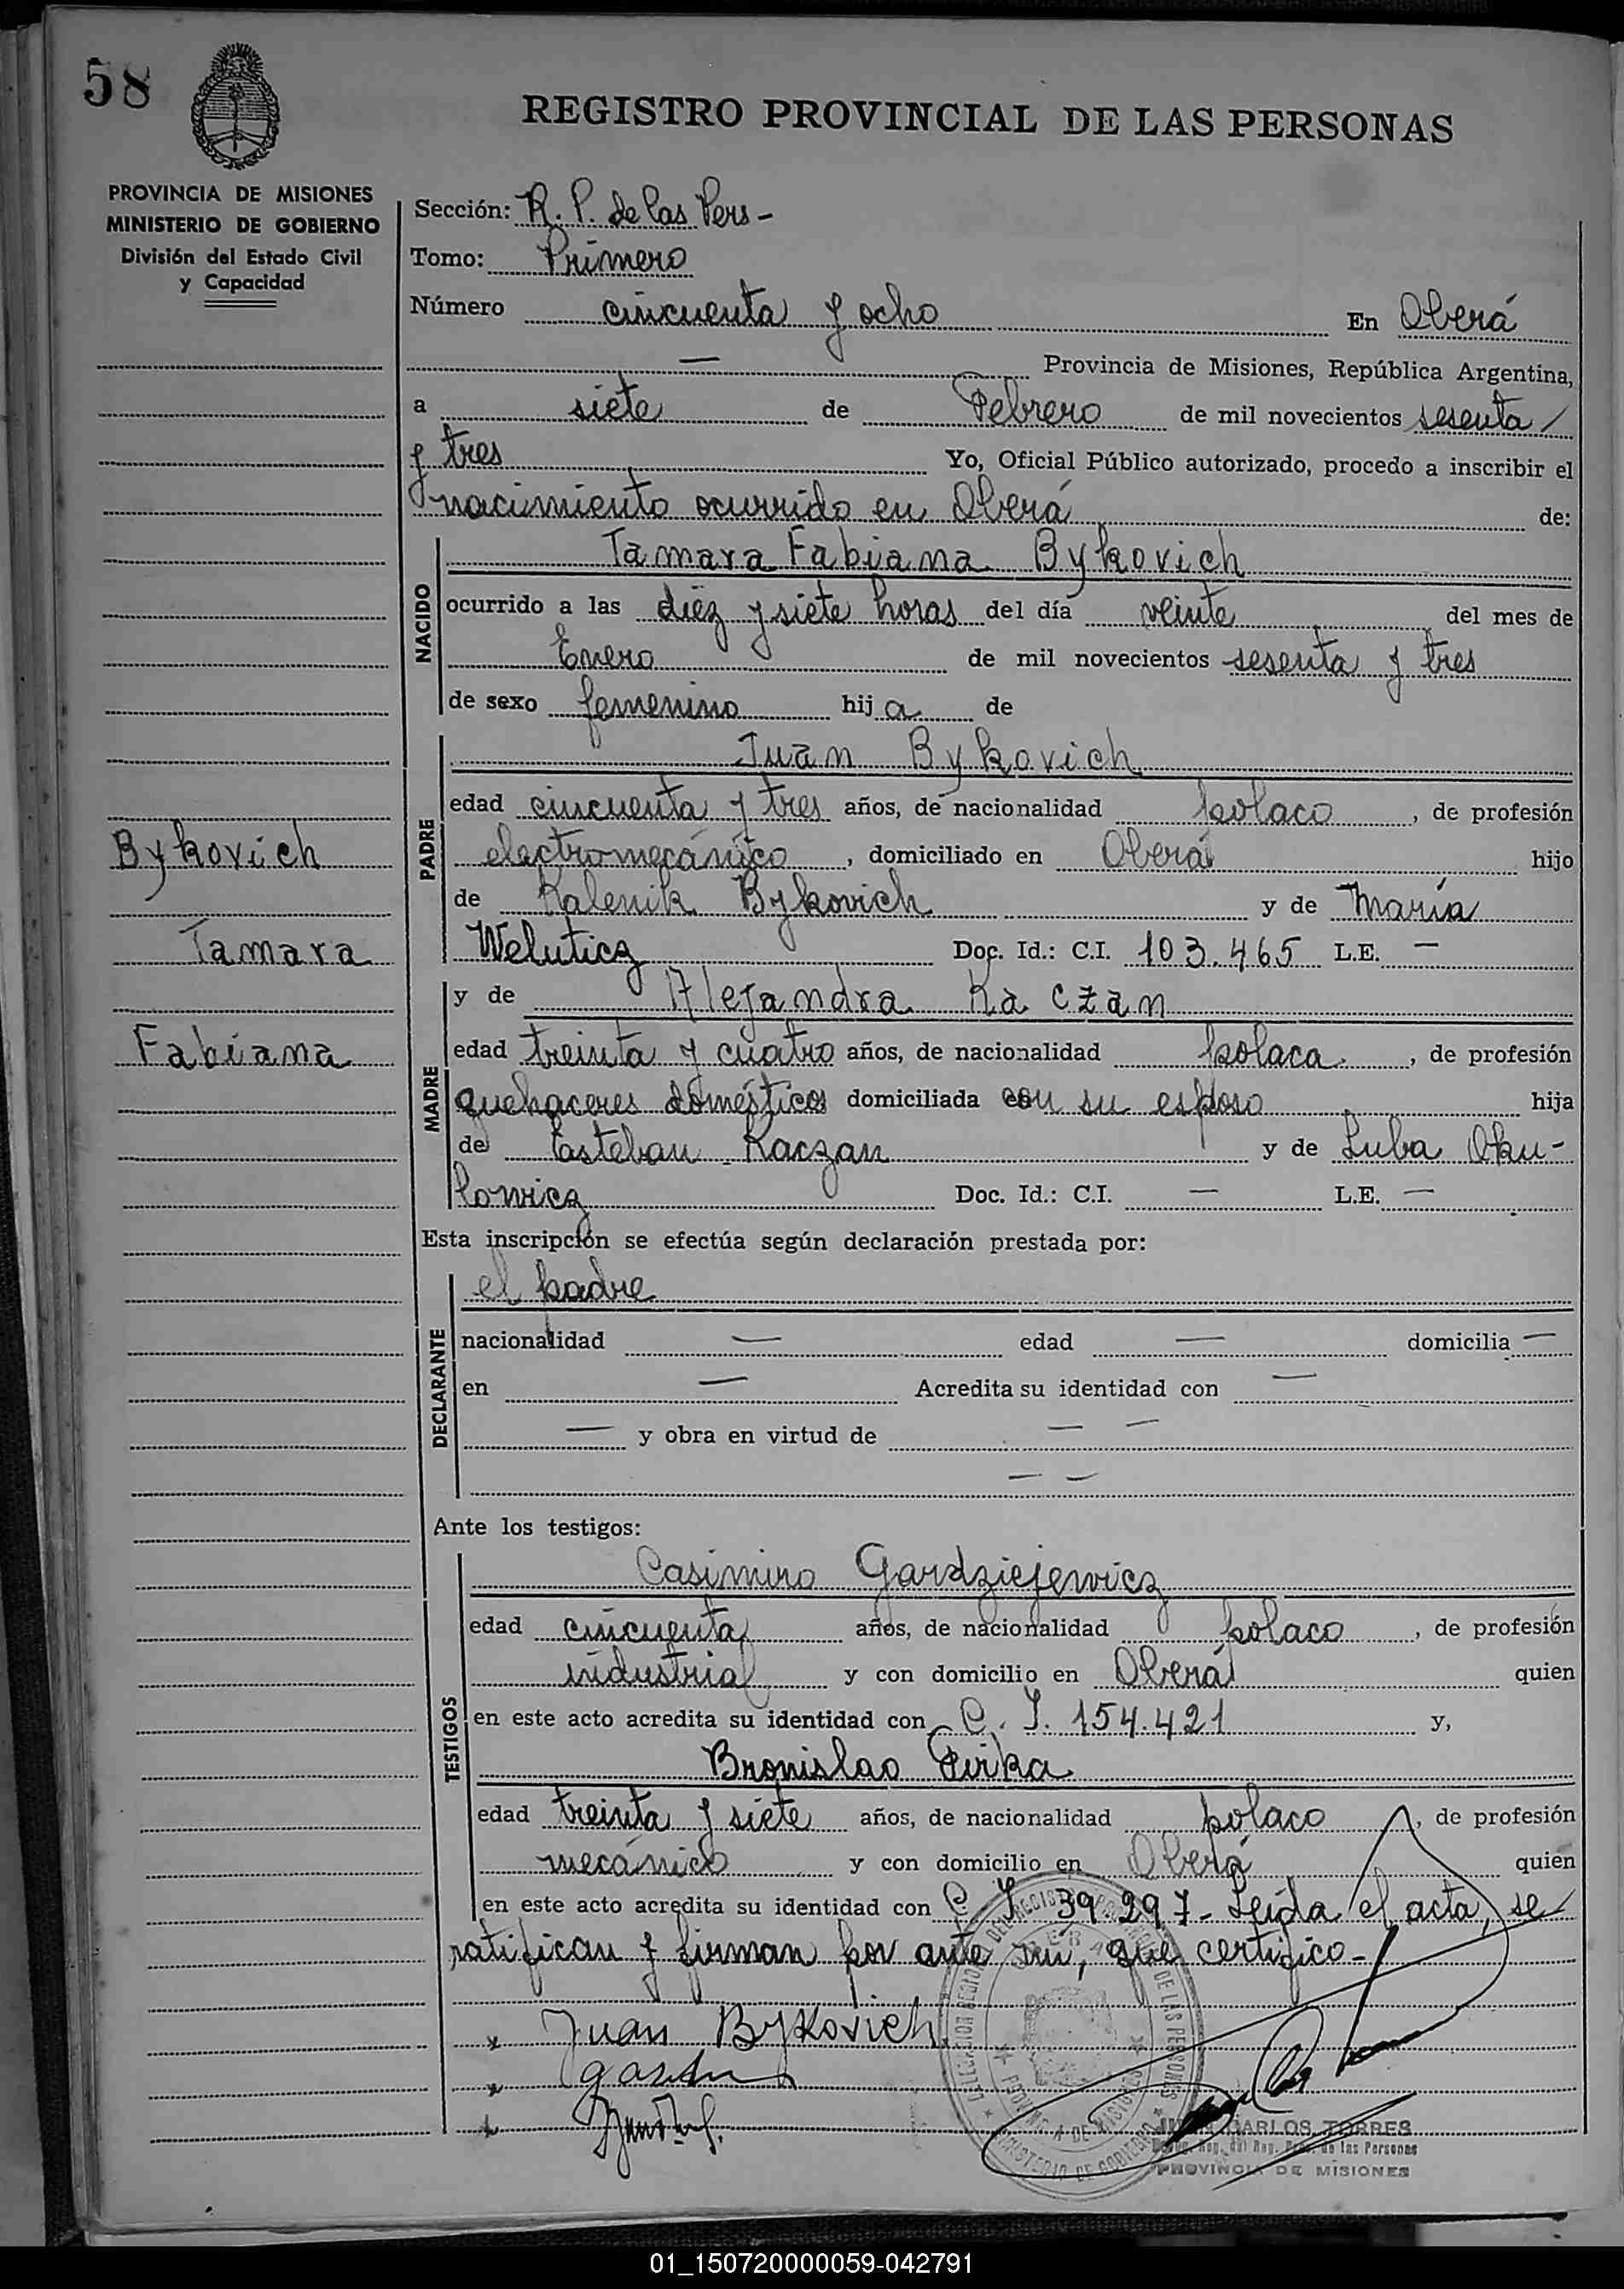 58
REGISTRO PROVINCIAL DE LAS PERSONAS
PROVINCIA DE MISIONES
MINISTERIO DE GOBIERNO
División del Estado Civil
y Capacidad
Sección: R. P. de las Pers -
Tomo: Primero
Número cincuenta y ocho En Oberá
— Provincia de Misiones, República Argentina,
a siete de Febrero de mil novecientos sesenta
y tres Yo, Oficial Público autorizado, procedo a inscribir el
nacimiento ocurrido en Oberá de:
NACIDO
Tamara Fabiana Bykovich
ocurrido a las diez y siete horas del día veinte del mes de
Enero de mil novecientos sesenta y tres
de sexo femenino hija de
PADRE
Juan Bykovich
edad cincuenta y tres años, de nacionalidad polaco, de profesión
electromecánico, domiciliado en Oberá hijo
de Kalenik Bykovich y de María
Weluticz Doc. Id.: C.I. 103.465 L.E. —
Bykovich
Tamara
Fabiana
MADRE
y de Alejandra Kaczan
edad treinta y cuatro años, de nacionalidad polaca, de profesión
quehaceres domésticos domiciliada con su esposo hija
de Esteban Kaczan y de Luba Oku-
lowicz Doc. Id.: C.I. — L.E. —
Esta inscripción se efectúa según declaración prestada por:
DECLARANTE
el padre
nacionalidad — edad — domicilia —
en — Acredita su identidad con —
— y obra en virtud de — —
— —
Ante los testigos:
TESTIGOS
Casimiro Gardziejewicz
edad cincuenta años, de nacionalidad polaco, de profesión
industrial y con domicilio en Oberá quien
en este acto acredita su identidad con C. I. 154.421 y,
Bronislao Pirka
edad treinta y siete años, de nacionalidad polaco, de profesión
mecánico y con domicilio en Oberá quien
en este acto acredita su identidad con C. I. 39 297 - Leída el acta, se
ratifican y firman por ante mí, que certifico -
x Juan Bykovich
x
x
CARLOS TORRES
de las Personas
PROVINCIA DE MISIONES
01_150720000059-042791